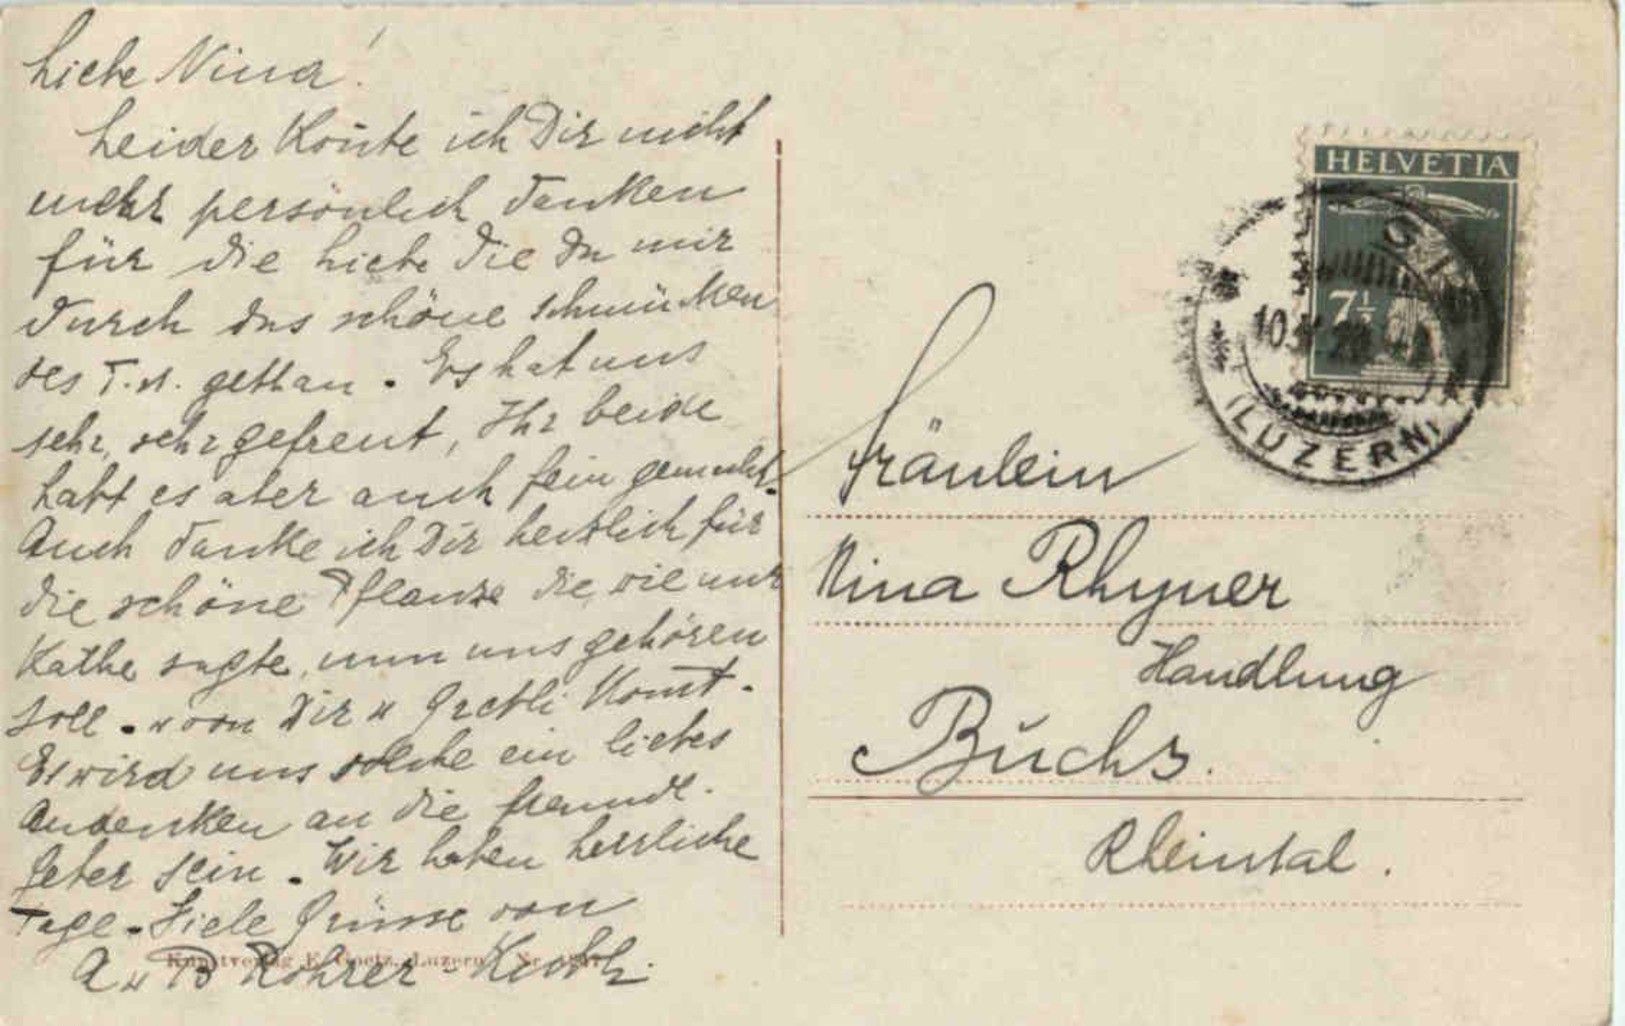 Liebe Nina!
Leider konte ich Dir nicht
mehr persönlich danken
für die Liebe die Du mir
durch das schöne schmücken
des T. gethan. Es hat uns
sehr, sehr gefreut, Ihr beide
habt es aber auch fein gemacht.
Auch danke ich Dir herzlich für
die schöne Pflanze die, wie mir
Käthe sagte, nun uns gehören
soll. u von Dir u Gretli komt.
Es wird uns solche ein liebes
Andenken an die freundl.
Geber sein. Wir haben herrliche
Tage. Viele Grüsse von
A u B Rohrer-
Kunstverlag E. Goetz, Luzern Nr.
HELVETIA
7½
10.
LUZERN
Fräulein
Nina Rhyner
Handlung
Buchs.
Rheintal.